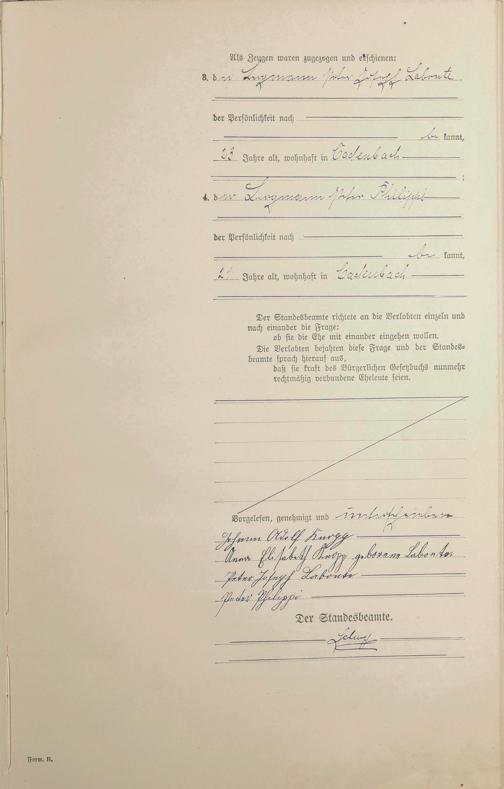 Als Zeugen waren zugezogen und erschienen:
3. der Bergmann Peter Josef Labonte
der Persönlichkeit nach
be kannt,
23 Jahre alt, wohnhaft in Cadenbach
;
4. der Bergmann Peter Philippi
der Persönlichkeit nach
be kannt,
21 Jahre alt, wohnhaft in Cadenbach
Der Standesbeamte richtete an die Verlobten einzeln und
nach einander die Frage:
ob sie die Ehe mit einander eingehen wollen.
Die Verlobten bejahten diese Frage und der Standes-
beamte sprach hierauf aus,
daß sie kraft des Bürgerlichen Gesetzbuchs nunmehr
rechtmäßig verbundene Eheleute seien.
Vorgelesen, genehmigt und unterschrieben
Johann Adolf Knopp
Anna Elisabeth Knopp geborene Labonte
Peter Josef Labonte
Peter Philippi
Der Standesbeamte.
Form. B.